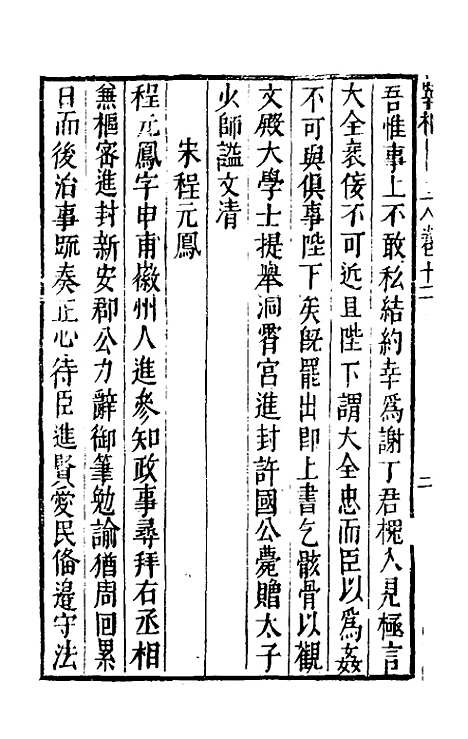 吾惟事上不敢私結約幸爲謝丁君槐入見極言
大全衺佞不可近且陛下謂大全忠而臣以爲姦
不可與俱事陛下矣旣罷出卽上書乞骸骨以觀
文殿大學士提舉洞霄宮進封許國公薨贈太子
少師諡文清
宋程元鳳
程元鳳字申甫徽州人進參知政事尋拜右丞相
兼樞密進封新安郡公力辭御筆勉諭猶周回累
日而後治事䟽奏正心待臣進賢愛民備邊守法
卷十二
二